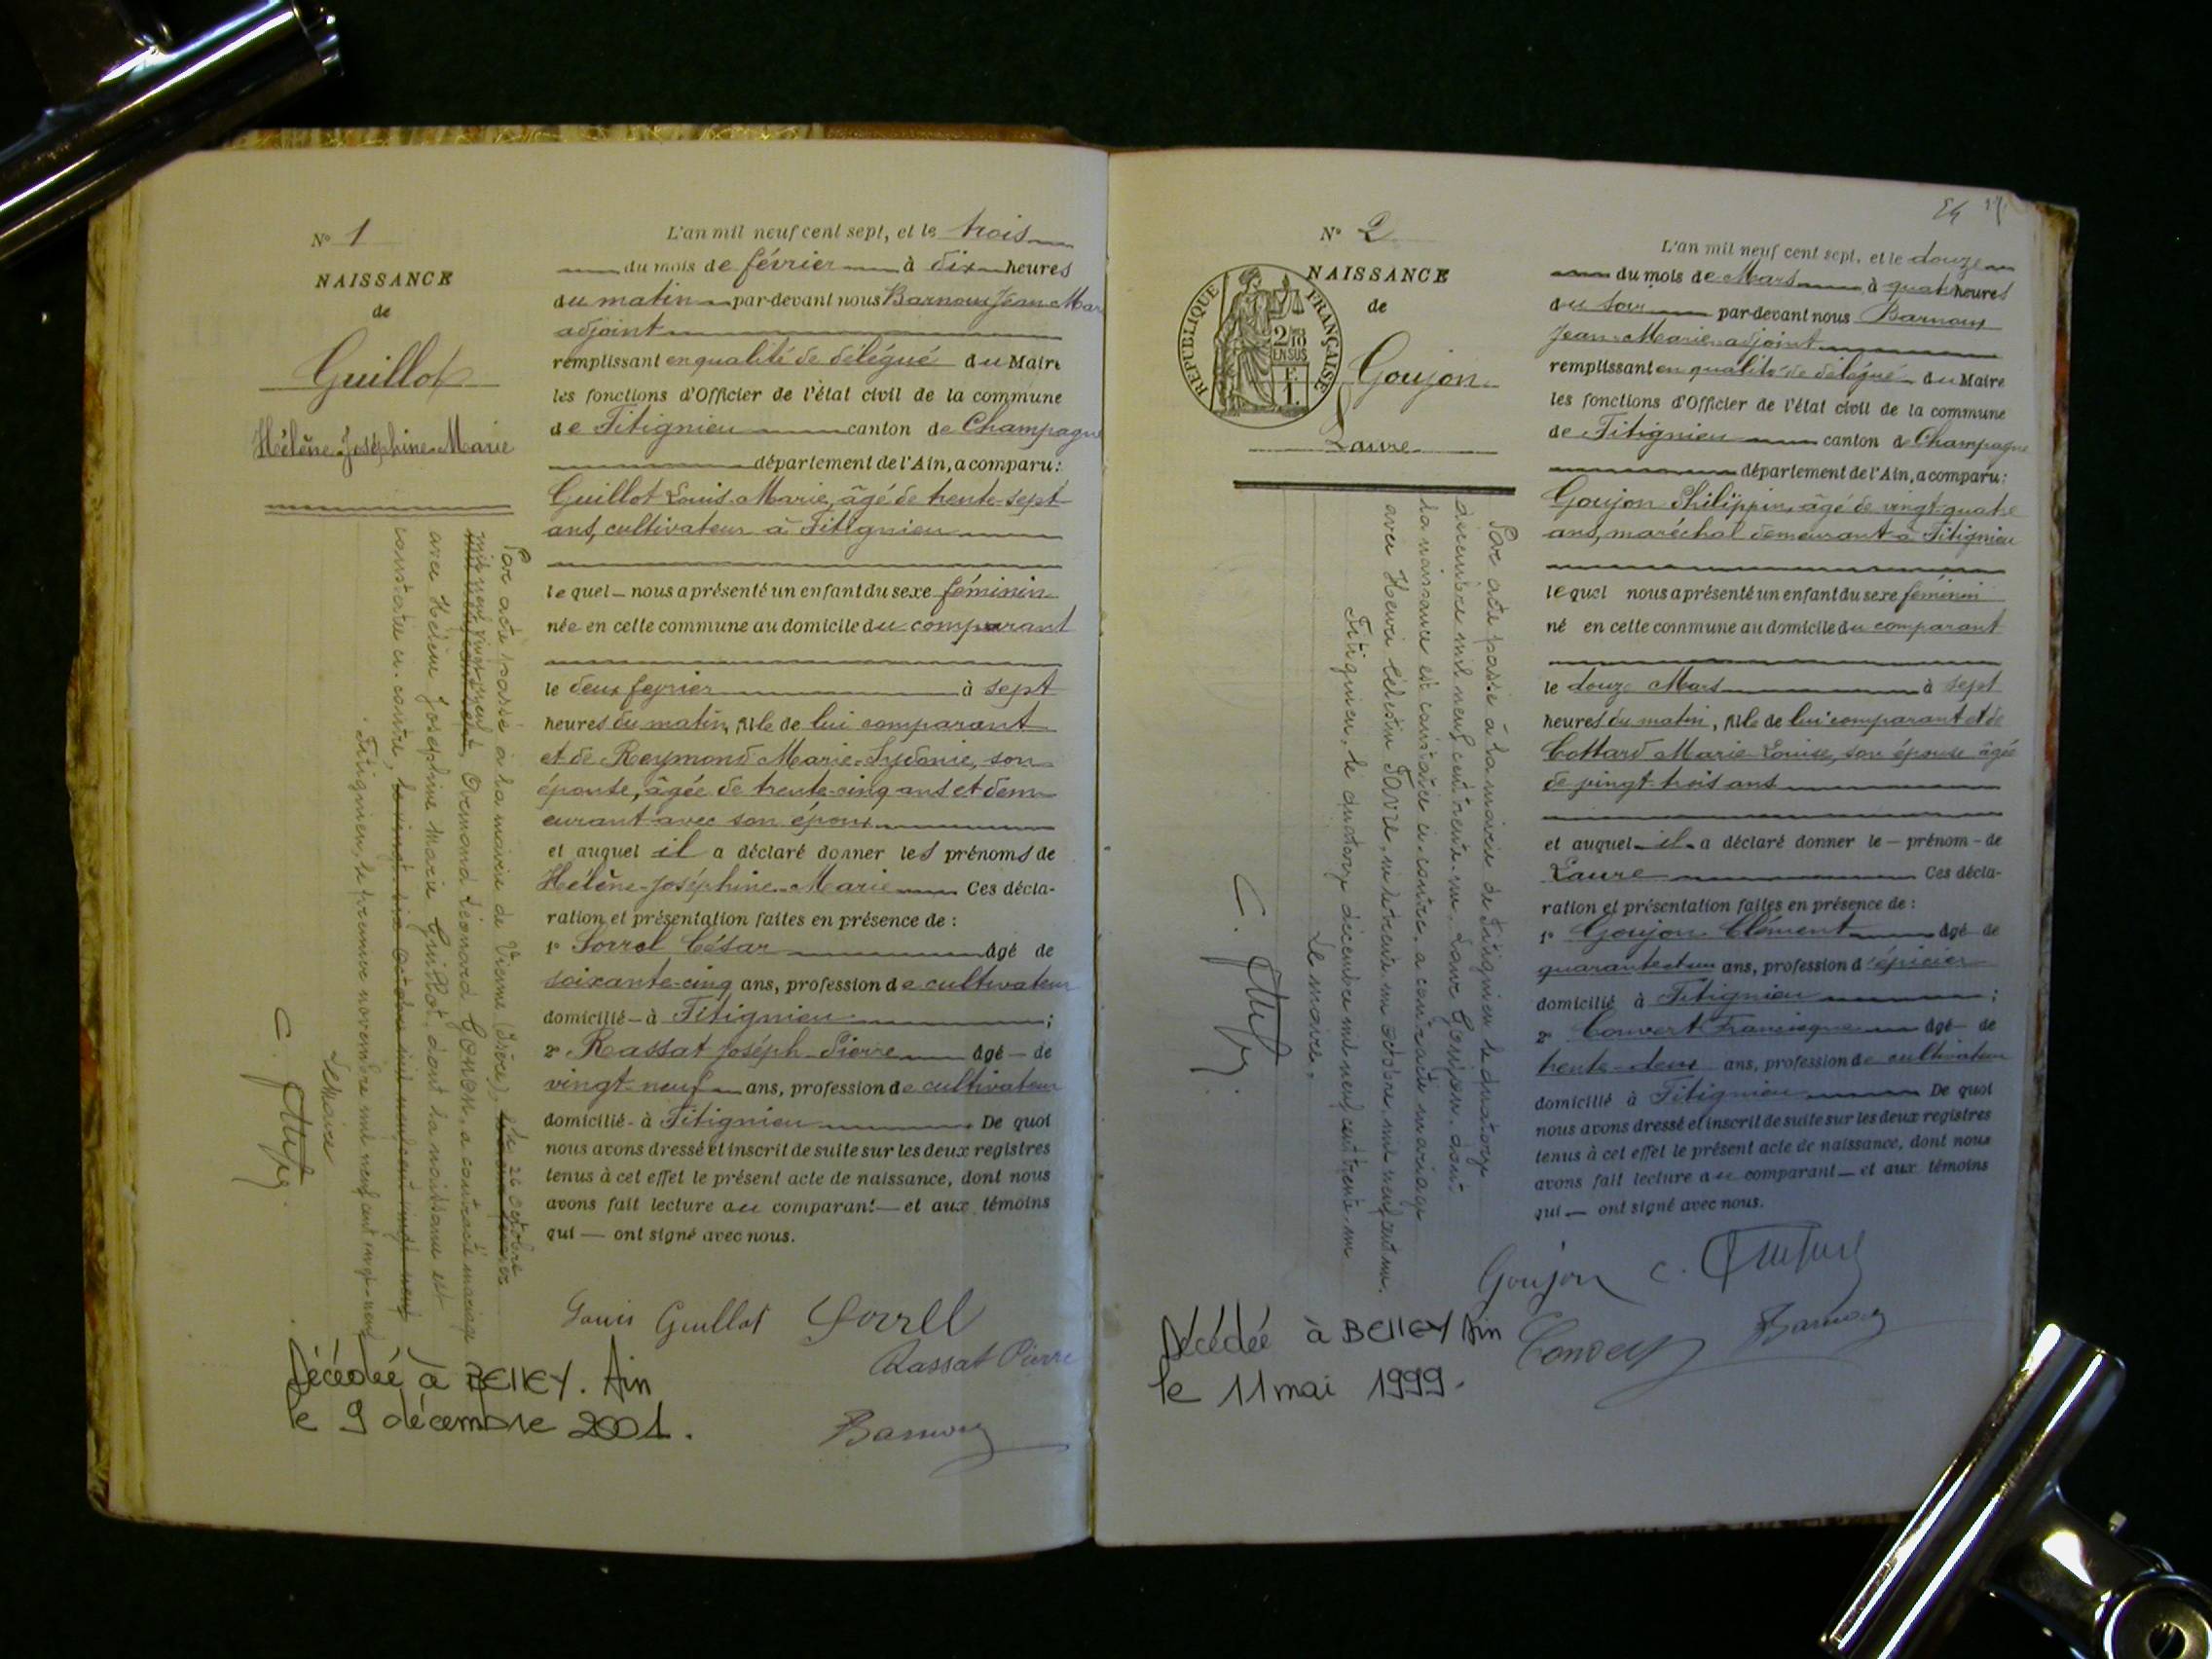 N° 1
NAISSANCE
de
Guillot
Hélène Joséphine Marie
L'an mil neuf cent sept, et le trois
du mois de février à dix heures
du matin par-devant nous Barnoux Jean Mar
adjoint
remplissant en qualité de délégué du Maire
les fonctions d'Officier de l'état civil de la commune
de Fitignieu canton de Champagne
département de l'Ain, a comparu:
Guillot Louis Marie, âgé de trente-sept
ans, cultivateur à Fitignieu
lequel nous a présenté un enfant du sexe féminin
née en cette commune au domicile du comparant
le deux février à sept
heures du matin, fille de lui comparant
et de Reymond Marie-Sydonie, son
épouse, âgée de trente-cinq ans et dem-
eurant avec son époux
et auquel il a déclaré donner les prénoms de
Hélène-Joséphine-Marie Ces décla-
ration et présentation faites en présence de :
1° Sorrel César Âgé de
soixante-cinq ans, profession de cultivateur
domicilié à Fitignieu ;
2° Rassat Joséph-Pierre Âgé de
vingt neuf ans, profession de cultivateur
domicilié à Fitignieu De quoi
nous avons dressé et inscrit de suite sur les deux registres
tenus à cet effet le présent acte de naissance, dont nous
avons fait lecture au comparant et aux témoins
qui ont signé avec nous.
Louis Guillot Sorrel
Rassat Pierre
Barnoux
Par acte passé à la mairie de Vienne (Isère), le 26 octobre
mil neuf cent vingt-neuf, Ormand Léonard GONON, a contracté mariage
avec Hélène Joséphine Marie Guillot, dont la naissance est
constatée ci-contre,
Fitignieu, le premier novembre mil neuf cent vingt-neuf
Le Maire
Décédée à BELLEY. Ain
le 9 décembre 2001.
N° 2
NAISSANCE
de
Goujon
Laure
RÉPUBLIQUE FRANÇAISE
2/10
EN SUS
F.
1.
L'an mil neuf cent sept, et le douze
du mois de Mars à quatre heures
du soir par-devant nous Barnoux
Jean Marie adjoint
remplissant en qualité de délégué du Maire
les fonctions d'Officier de l'état civil de la commune
de Fitignieu canton de Champagne
département de l'Ain, a comparu:
Goujon Philippin, âgé de vingt-quatre
ans, maréchal demeurant à Fitignieu
lequel nous a présenté un enfant du sexe féminin
né en cette commune au domicile du comparant
le douze Mars à sept
heures du matin, fille de lui comparant et de
Cottard Marie-Louise, son épouse âgée
de vingt-trois ans
et auquel il a déclaré donner le prénom de
Laure Ces décla-
ration et présentation faites en présence de :
1° Goujon Clément Âgé de
quarante et un ans, profession d'épicier
domicilié à Fitignieu ;
2° Convert Francisque Âgé de
trente-deux ans, profession de cultivateur
domicilié à Fitignieu De quoi
nous avons dressé et inscrit de suite sur les deux registres
tenus à cet effet le présent acte de naissance, dont nous
avons fait lecture au comparant et aux témoins
qui ont signé avec nous.
Goujon
Convert Barnoux
Par acte passé à la mairie de Fitignieu le quatorze
décembre mil neuf cent trente-un, Laure Goujon, dont
la naissance est constatée ci-contre, a contracté mariage
avec Henri Célestin FAVRE, né le trente un octobre mil neuf cent un.
Fitignieu, le quatorze décembre mil neuf cent trente-un
Le maire,
Décédée à BELLEY Ain
le 11 mai 1999.